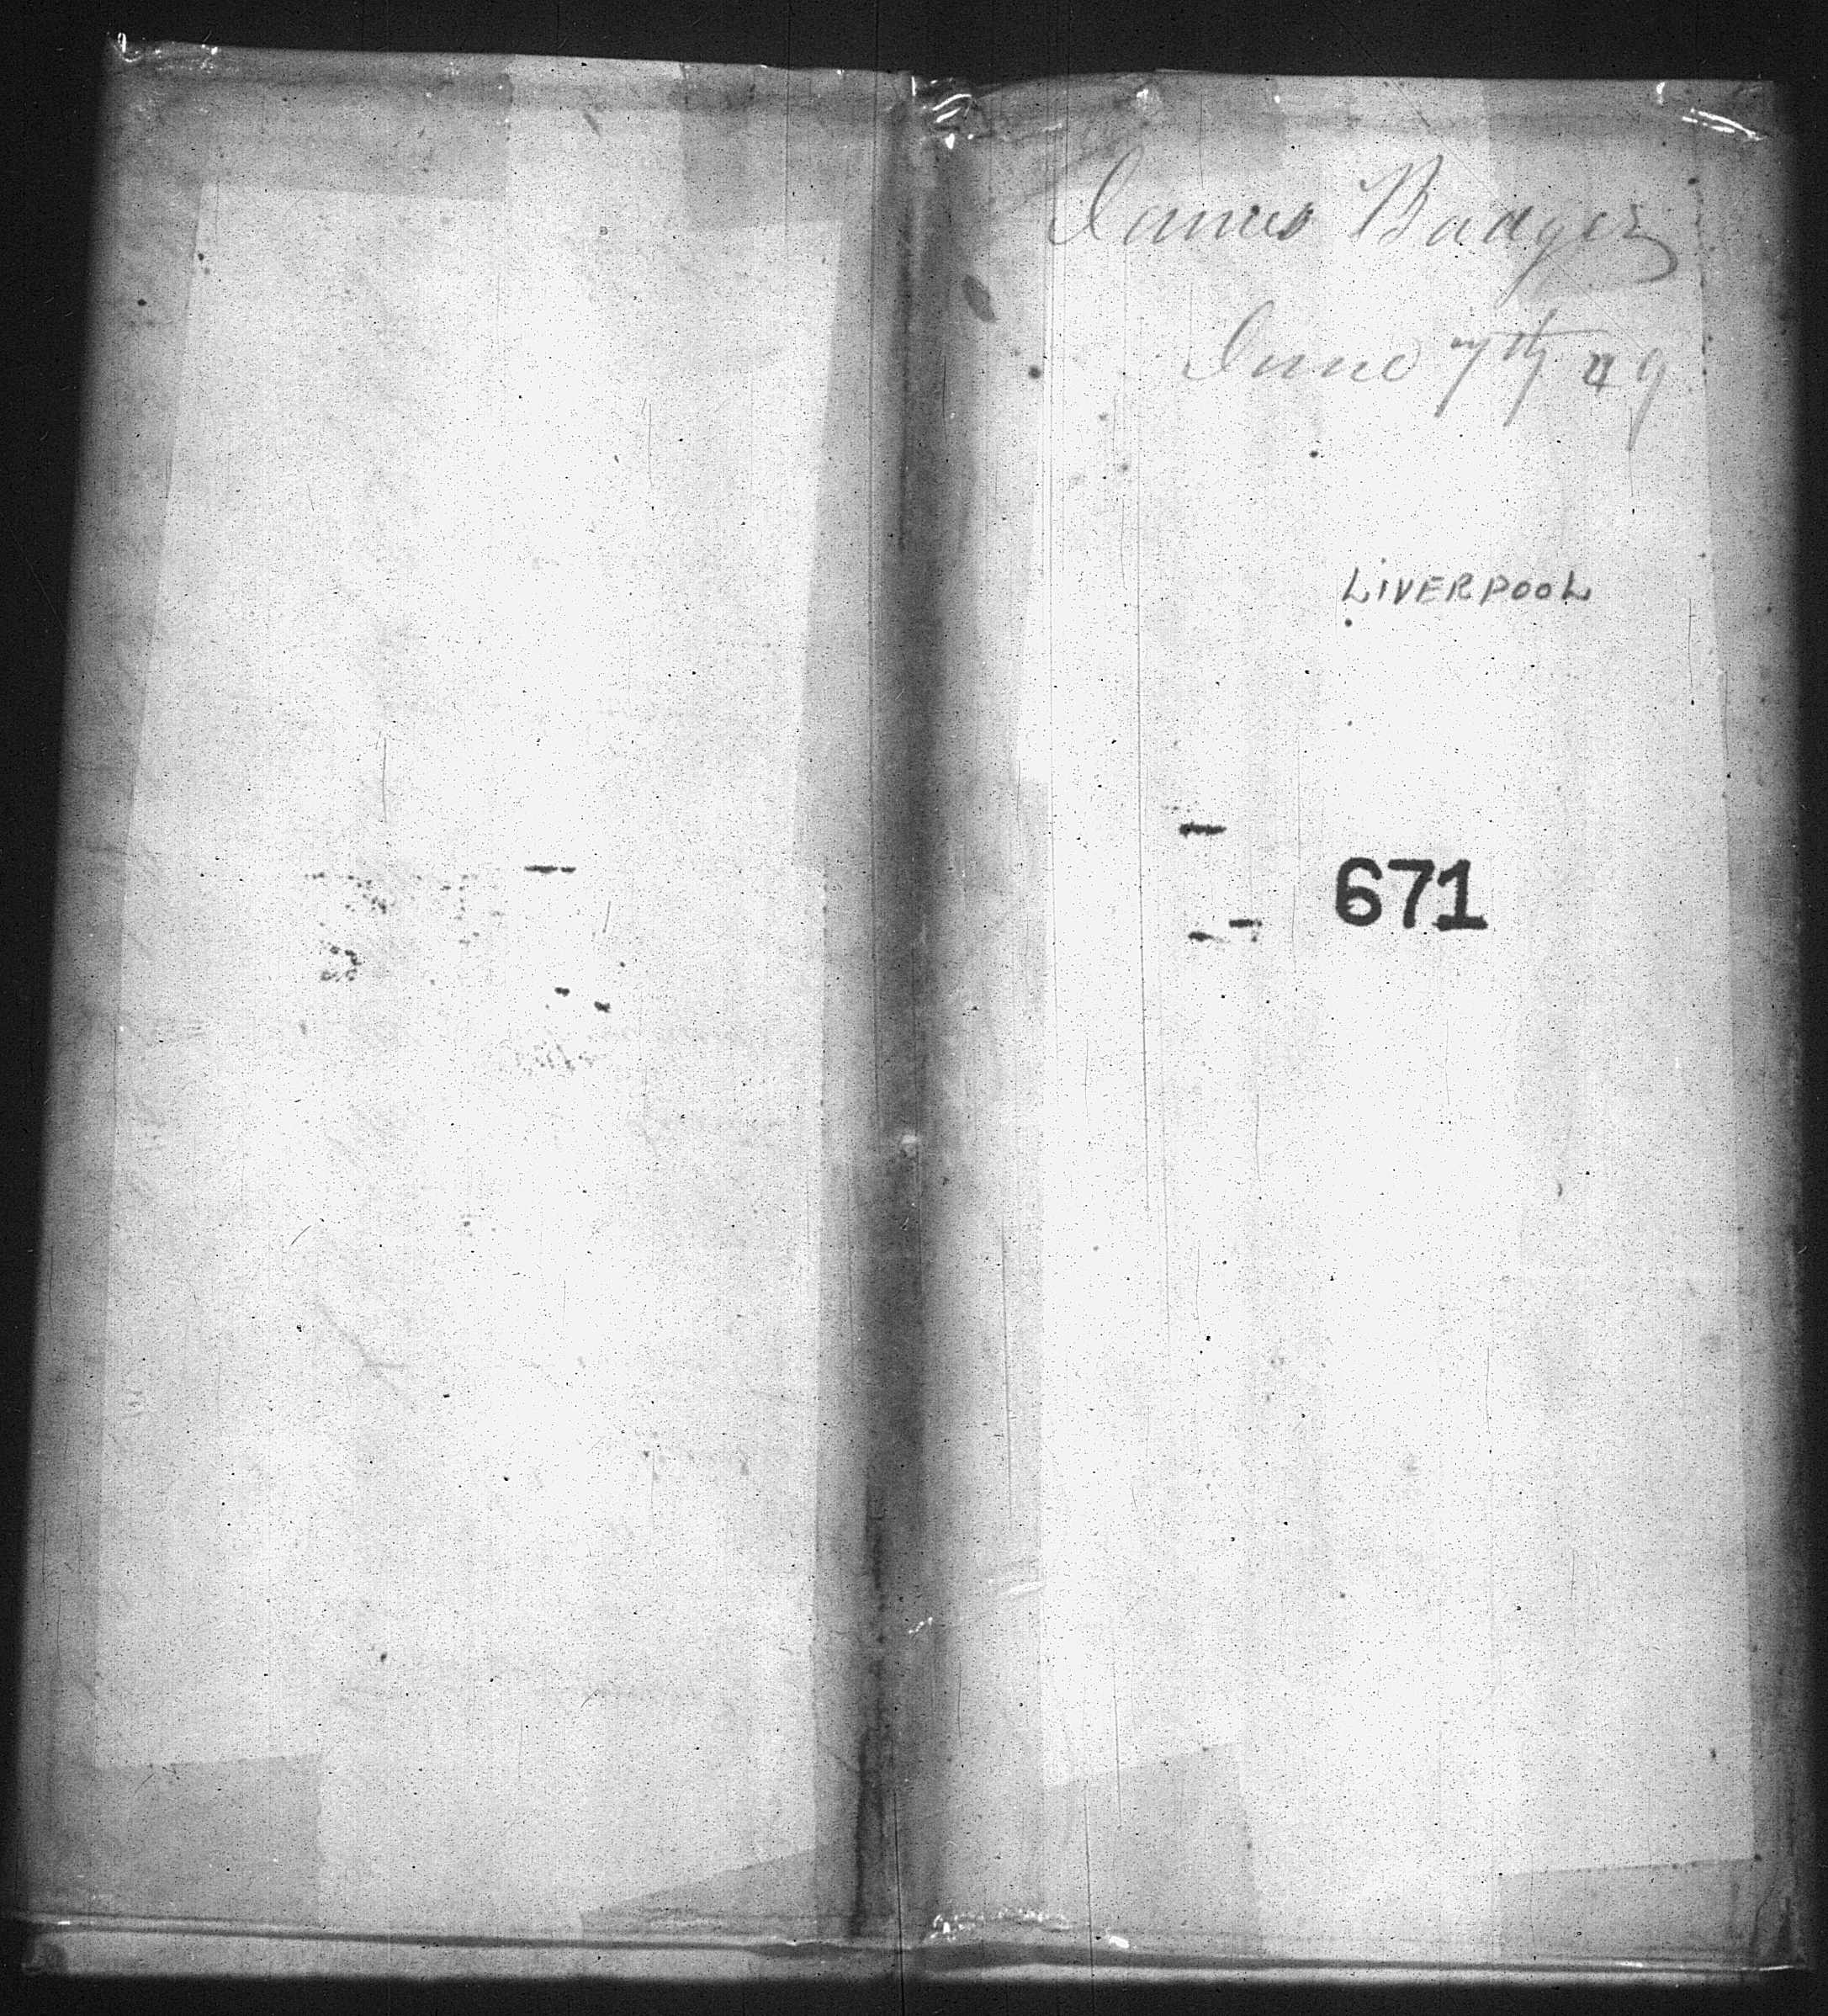 James Badger
June 7th 49
LIVERPOOL
671